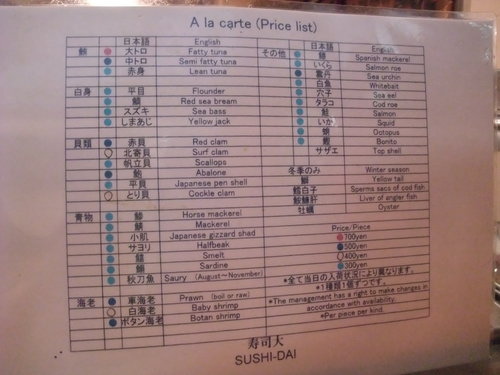 A la carte (Price list)
日本語 English
鮪 大トロ Fatty tuna
中トロ Semi fatty tuna
赤身 Lean tuna
白身 平目 Flounder
鯛 Red sea bream
スズキ Sea bass
しまあじ Yellow jack
貝類 赤貝 Red clam
北寄貝 Surf clam
帆立貝 Scallops
鮑 Abalone
平貝 Japanese pen shell
とり貝 Cockle clam
青物 鯵 Horse mackerel
鯖 Mackerel
小肌 Japanese gizzard shad
サヨリ Halfbeak
Smelt
Sardine
秋刀魚 Saury (August~November)
海老 車海老 Prawn (boil or raw)
白海老 Baby shrimp
ボタン海老 Botan shrimp
その他 日本語 English
Spanish mackerel
いくら Salmon roe
雲丹 Sea urchin
白魚 Whitebait
穴子 Sea eel
タラコ Cod roe
鮭 Salmon
いか Squid
蛸 Octopus
鰹 Bonito
サザエ Top shell
冬季のみ Winter season
鰤 Yellow tail
鱈白子 Sperms sacs of cod fish
鮟鱇肝 Liver of angler fish
牡蠣 Oyster
Price/Piece
700yen
500yen
400yen
300yen
*全て当日の入荷状況により異なります。
*1種類1個ずつです。
*The management has a right to make changes in
accordance with availability.
*Per piece per kind.
寿司大
SUSHI-DAI